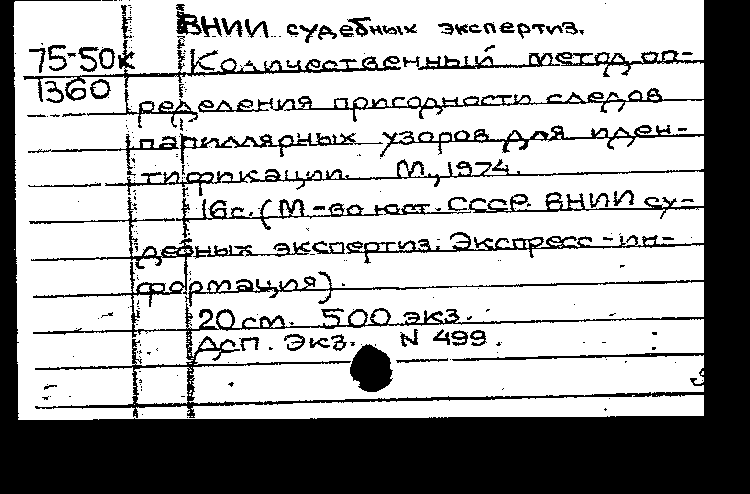 ВНИИ судебных экспертиз.
75-50к Количественный метод оп-
1360 ределения пригодности следов
папиллярных узоров для иден-
тификации. М., 1974.
16с. (М-во юст. СССР. ВНИИ су-
дебных экспертиз. Экспресс-ин-
формация).
20 см. 500 экз.
Дсп. Экз. N 499.